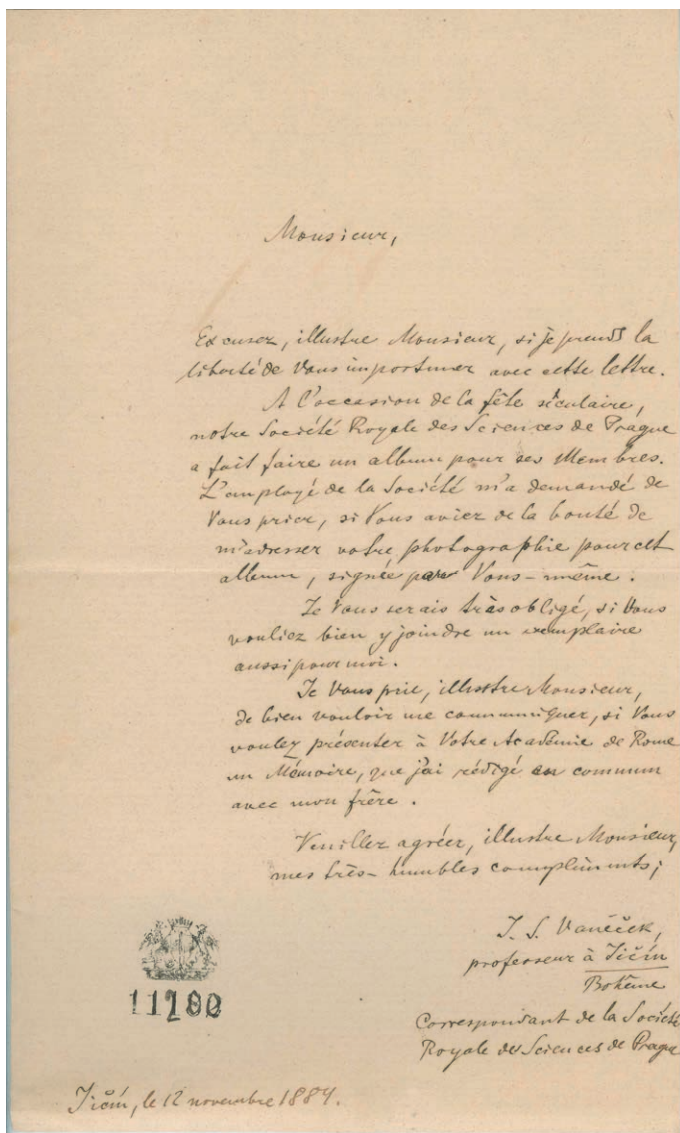 Monsieur,
Excusez, illustre Monsieur, si je prends la
liberté de Vous importuner avec cette lettre.
A l'occasion de la fête séculaire,
notre Société Royale des Sciences de Prague
a fait faire un album pour ses Membres.
L'employé de la Société m'a demandé de
Vous prier, si Vous aviez de la bonté de
m'adresser votre photographie pour cet
album, signée par Vous-même.
Je Vous serais très obligé, si Vous
vouliez bien y joindre un exemplaire
aussi pour moi.
Je Vous prie, illustre Monsieur,
de bien vouloir me communiquer, si Vous
voulez présenter à Votre Académie de Rome
un Mémoire, que j'ai rédigé en commun
avec mon frère.
Veuillez agréer, illustre Monsieur,
mes très-humbles compliments;
J. S. Vaněček,
professeur à Jičín
Bohême
Correspondant de la Société
Royale des Sciences de Prague
11200
Jičín, le 12 novembre 1884.